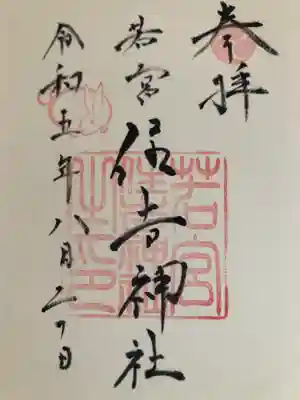 奉拝
若宮
住吉神社
令和五年八月二十日
若宮
住吉神社
之印